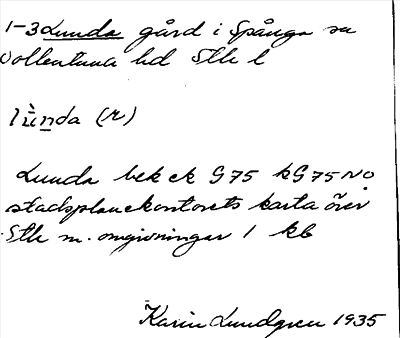 1-3 Lunda gård i Spånga sn
Sollentuna hd Sthlm l
lùnda (r)
Lunda bek ek G 75 kG 75 NO
stadsplanekontorets karta över
Sthlm m. omgivningar 1 kb
Karin Lundgren 1935